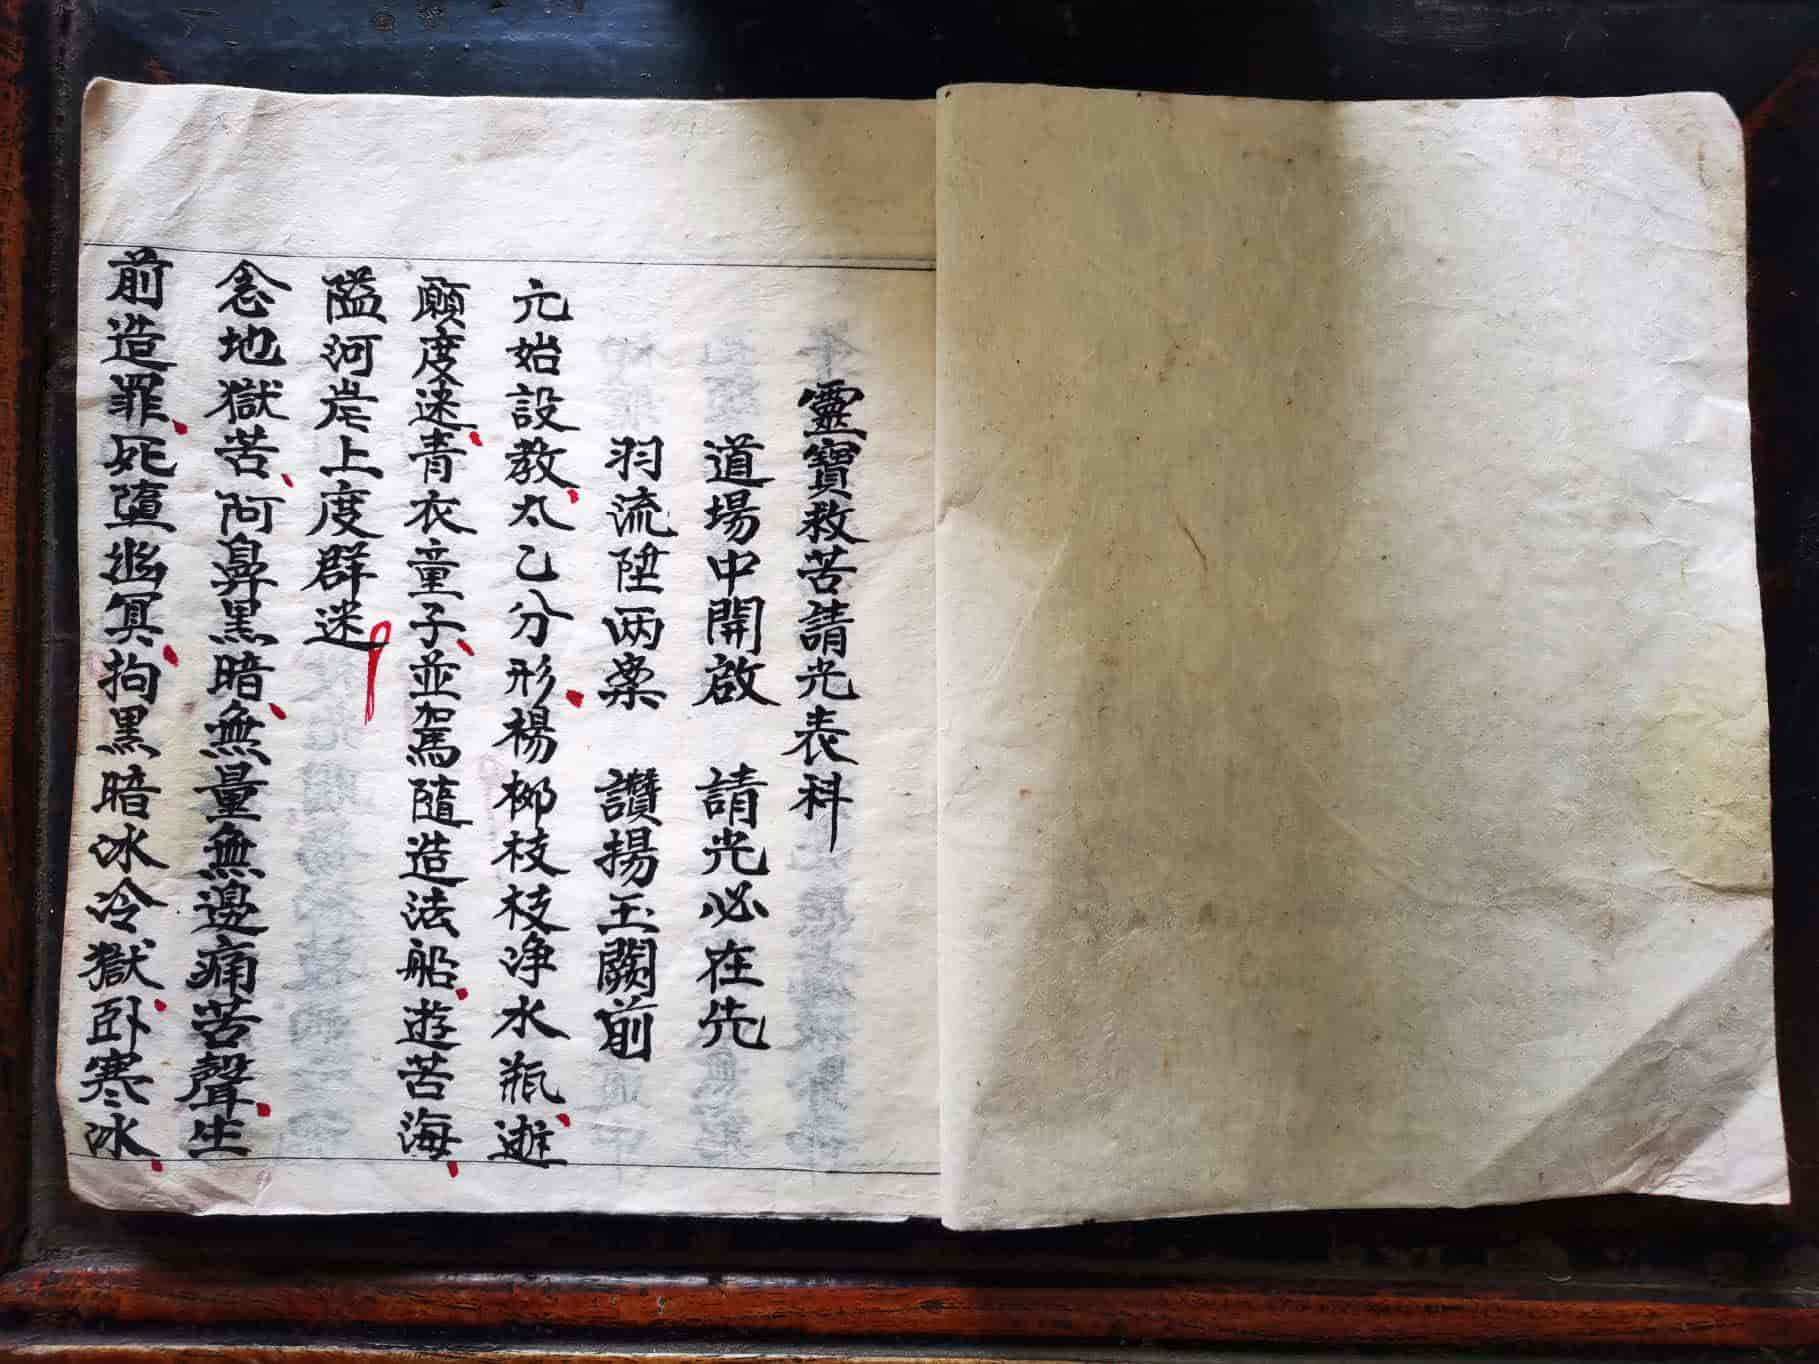 靈寶救苦請光表科
道場中開啟 請光必在先
羽流陞两案 讚揚玉闕前
元始設教太乙分形楊柳枝枝净水瓶遊
願度迷青衣童子並駕隨造法船遊苦海
隘河岸上度群迷
念地獄苦阿鼻黑暗無量無邊痛苦聲生
前造罪死墮幽冥拘黑暗冰冷獄卧寒冰